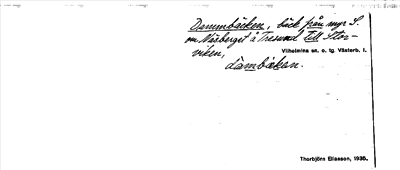 Dammbäcken, bäck från myr S.
om Näsberget å Tresund till Stor-
viken,
Vilhelmina sn. o. tg. Västerb. l.
dàmbäkan.
Thorbjörn Eliasson, 1935.